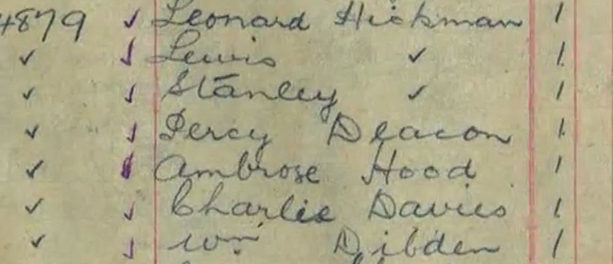 4879 ✓ Leonard Hickman 1
✓ ✓ Lewis ✓ 1
✓ ✓ Stanley ✓ 1
✓ ✓ Percy Deacon 1
✓ ✓ Ambrose Hood 1
✓ ✓ Charlie Davies 1
✓ ✓ Wm Dibden 1